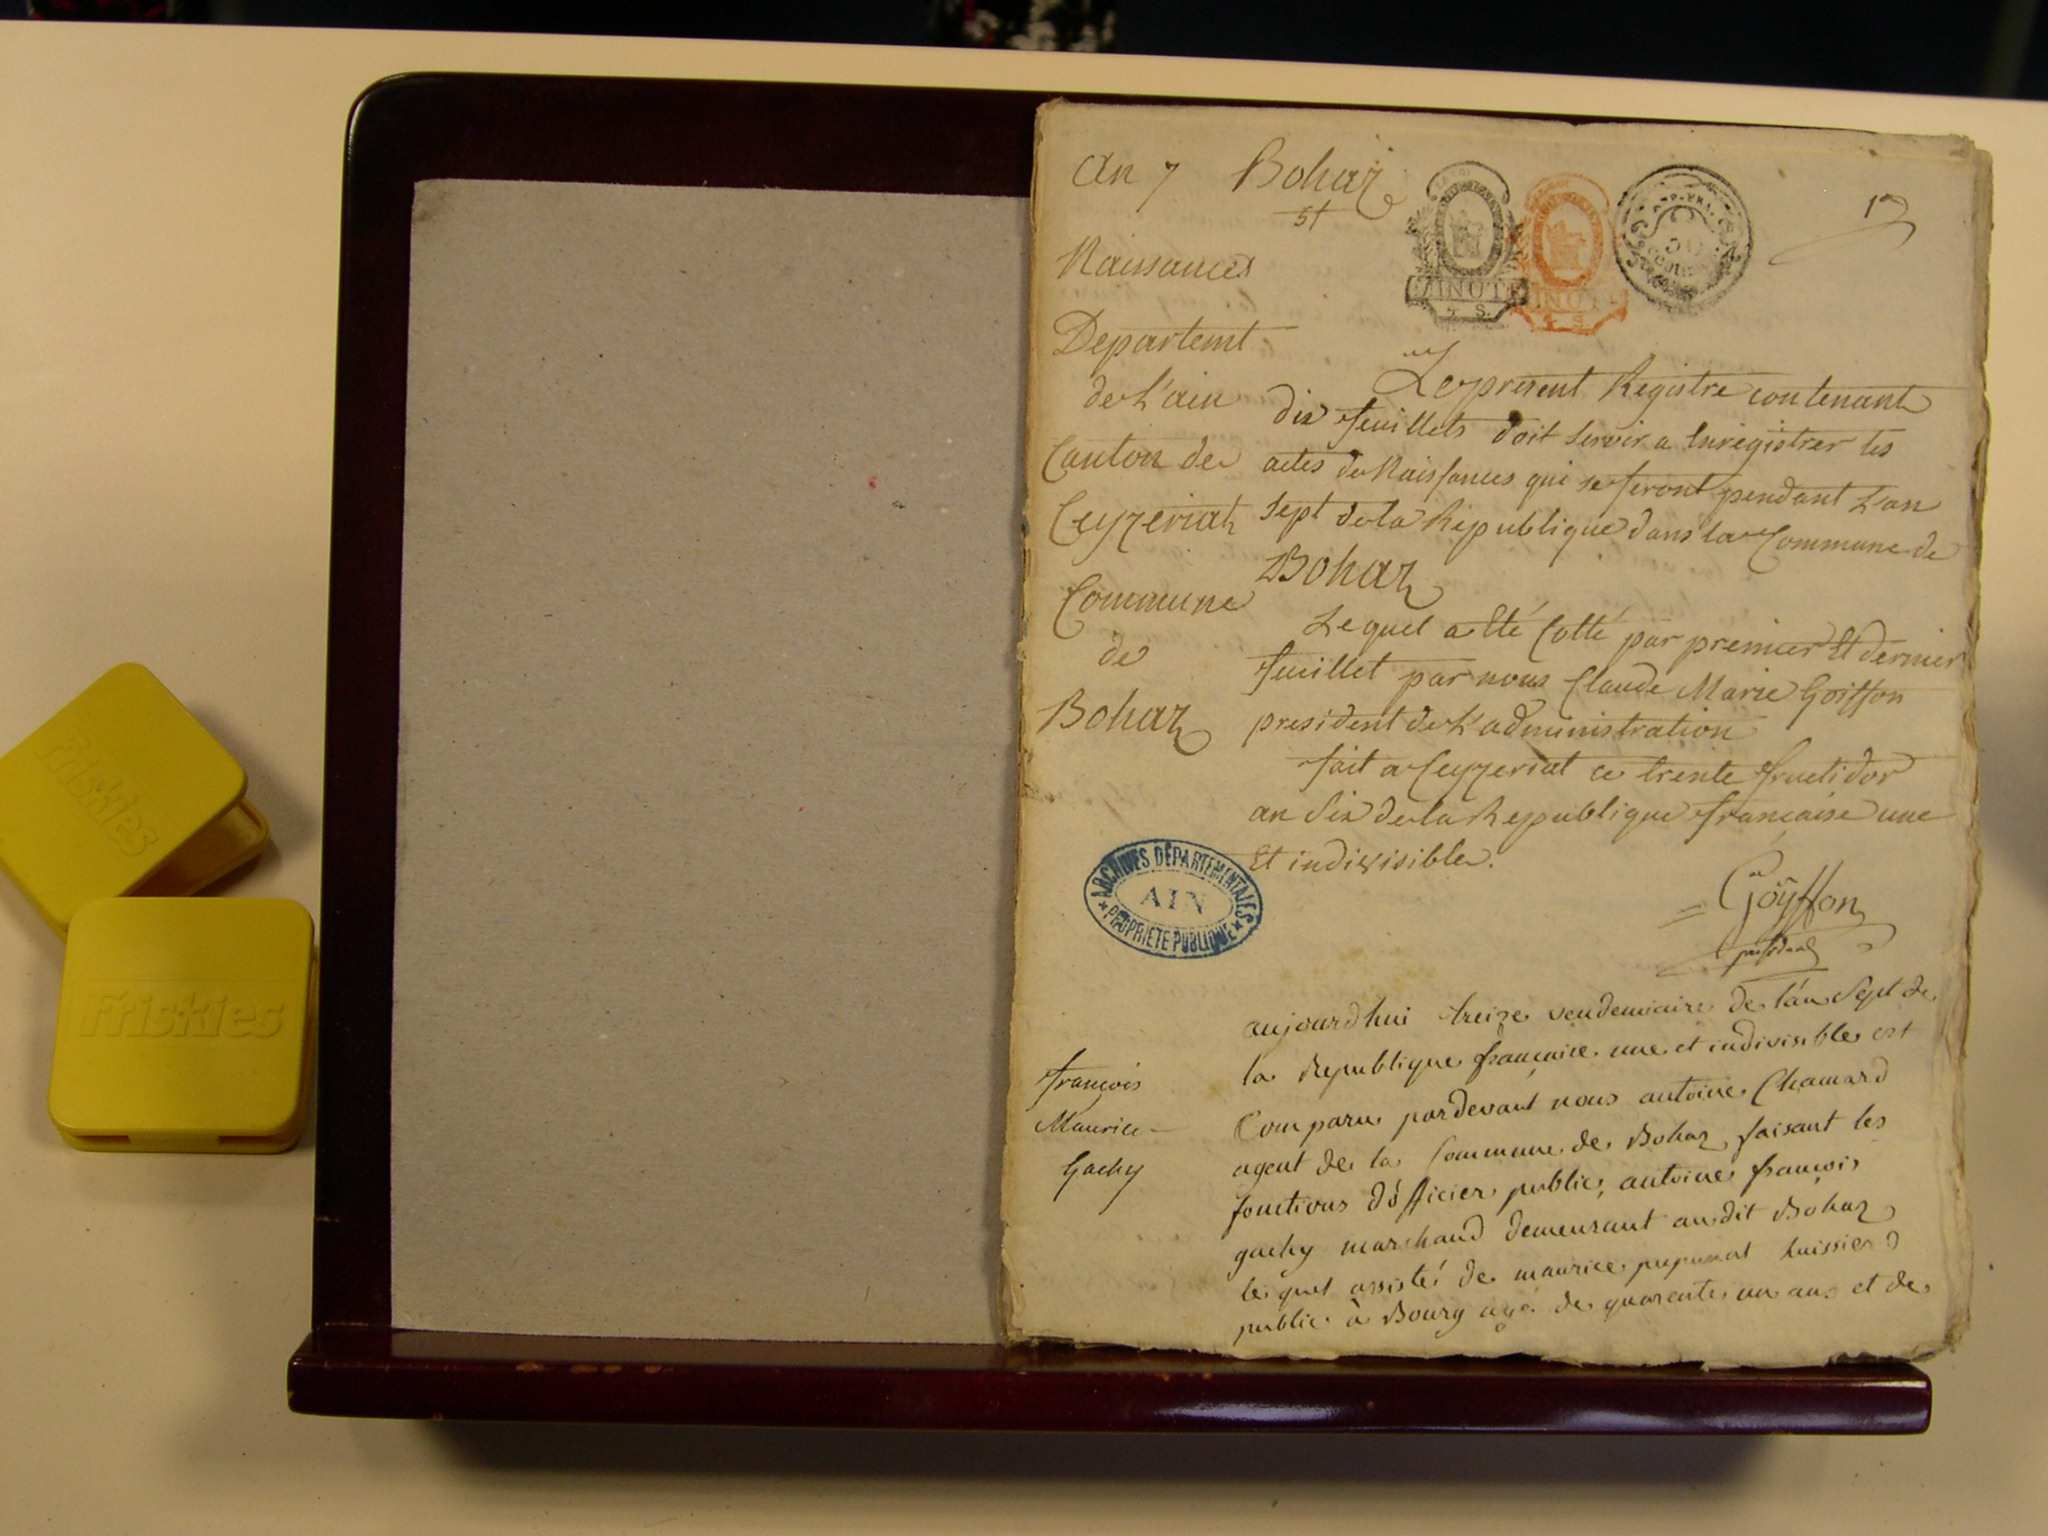 An 7 Bohaz
51
13
MINUTE
4 S.
MINUTE
4 S.
Naissances
Departemt
de L'ain
Canton de
Ceyzeriat
Commune
de
Bohaz
Le present Registre contenant
dix feuillets doit servir a Enregistrer les
actes de Naissances qui se feront pendant L'an
sept de la Republique dans la Commune de
Bohaz
Lequel a Eté Cotté par premier Et dernier
feuillet par nous Claude Marie Goiffon
president de L'administration
fait a Ceyzeriat ce trente fructidor
an Six de la Republique française une
Et indivisible.
Goÿffon
president
ARCHIVES DÉPARTEMENTALES
AIN
PROPRIÉTÉ PUBLIQUE
françois
Maurice
Gachy
aujourdhui treize vendemiaire de l'an Sept de
la Republique française une et indivisible est
Comparu pardevant nous antoine Chamard
agent de la Commune de Bohaz faisant les
fonctions d'officier public, antoine françois
gachy marchand demeurant audit Bohaz
lequel assisté de maurice huissier
public à Bourg agé de quarente un ans et de
Friskies
Friskies